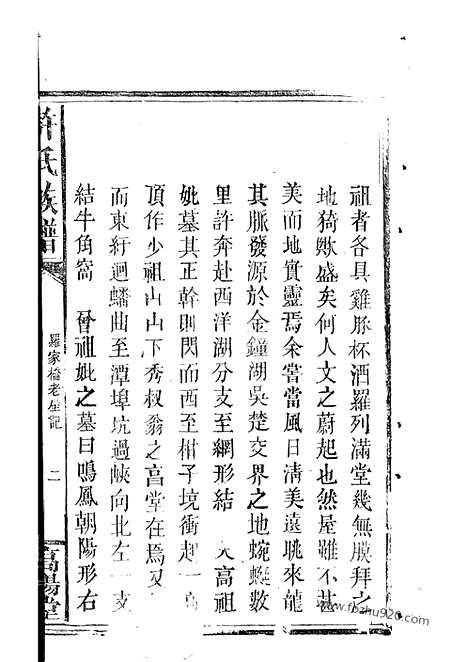 祖者各具雞豚杯酒羅列滿堂幾無膜拜之
地猗歟盛矣何人文之蔚起也然屋雖不甚
美而地實靈焉余嘗當風日清美遠眺來龍
其脈發源於金鐘湖吳楚交界之地蜿蜒數
里許奔赴西洋湖分支至網形結 高祖
妣墓其正幹則閃而西至柑子境衝起一
頂作少祖山山下秀叔翁之享堂在焉又
而東紆迴蟠曲至潭埠坑過峽向北左一支
結牛角窩 晉祖妣之墓曰鳴鳳朝陽形右
許氏族譜
羅家橋老屋記
二
高陽堂
www.fzbzhu920.com